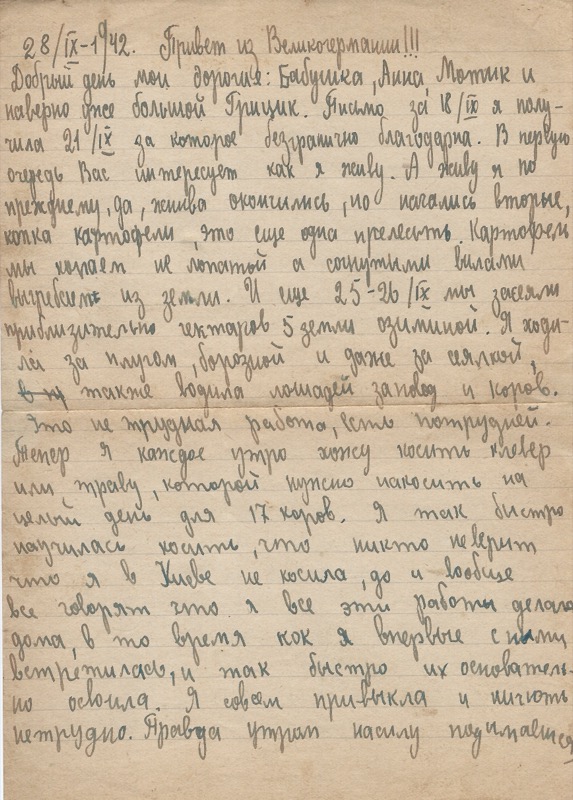 28/IX-1942. Привет из Великогермании!!!
Добрый день мои дорогия: Бабушка, Анна, Мотик и
наверно уже большой Грицик. Письмо за 18/IX я полу-
чила 21/IX за которое безгранично благодарна. В первую
очередь Вас интересует как я живу. А живу я по
прежнему, да, жнива окончились, но начались вторые,
копка картофели, это еще одна прелесть. Картофель
мы копаем не лопатой а согнутыми вилами
выгребаем из земли. И еще 25-26/IX мы засеяли
приблизительно гектаров 5 земли озиминой. Я ходи-
ла за плугом, бороной и даже за сеялкой,
также водила лошадей за повод и коров.
Это не трудная работа, есть потрудней.
Тепер я каждое утро хожу косить клевер
или траву, которой нужно накосить на
целый день для 17 коров. Я так быстро
научилась косить, что никто не верит
что я в Киеве не косила, да и вообще
все говорят что я все эти работы делала
дома, в то время как я впервые с ними
встретилась, и так быстро их основатель-
но освоила. Я совсем привыкла и ничють
нетрудно. Правда утром насилу подимаешся